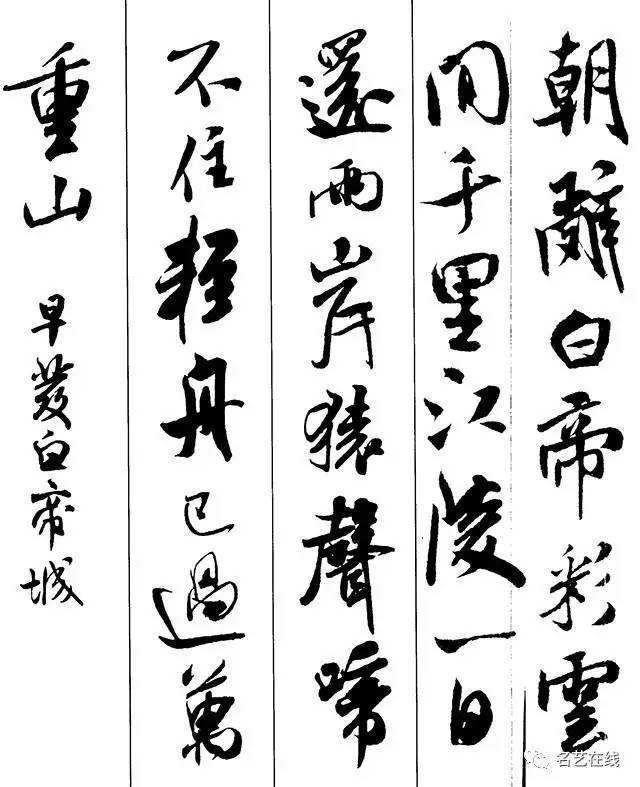 朝辭白帝彩雲
間千里江陵一日
還兩岸猿聲啼
不住輕舟已過萬
重山 早發白帝城
名艺在线